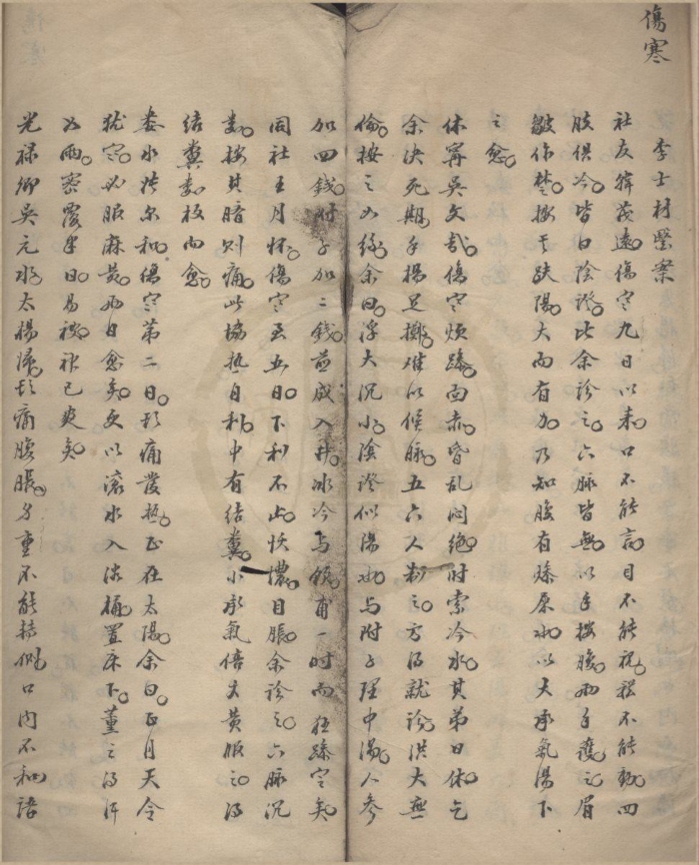 傷寒
李士材醫案
社友韓茂遠傷寒九日以來口不能言目不能視體不能動四
肢俱冷皆曰陰證比余診之六脉皆無以手按腹兩手護之眉
皺作楚按于趺陽大而有力乃知腹有燥屎也以大承氣湯下
之愈
休寧吳文哉傷寒煩躁面赤昏乱悶絶时索冷水其弟日休乞
余決死期手揚足擲难以候脉五六人制之方得就診洪大無
倫按之如絲余曰浮大沉小陰證似陽也与附子理中湯人參
加四錢附子加二錢煎成入井冰冷与飲甫一时而狂躁定矣
同社王月怀傷寒至五日下利不止懊憹目脹余診之六脉沉
數按其臍則痛此協热自利中有结糞小承氣倍大黄服之得
结糞數枚而愈
婁水張尔和傷寒第二日頭痛發热正在太陽余曰正月天令
犹寒必服麻黄兩日愈矣更以滚水入浴桶置床下薰之得汗
如雨密覆半日易被神已爽矣
光禄卿吳元水太楊病頭痛腹脹身重不能转側口内不和語